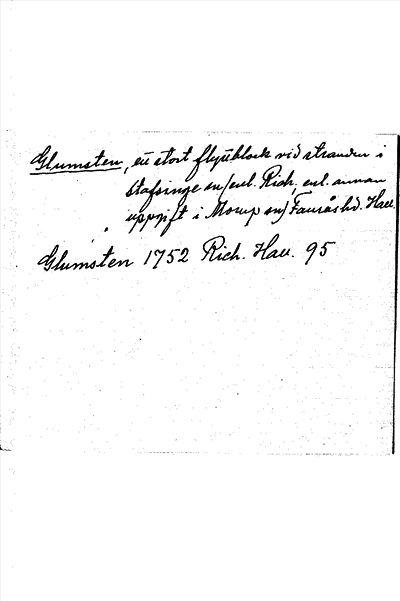 Glumsten, ett stort flyttblock vid stranden i
Stafsinge sn (enl. Rich., enl. annan
uppgift i Morup sn) Faurås hd. Hall.
Glumsten 1752 Rich. Hall. 95